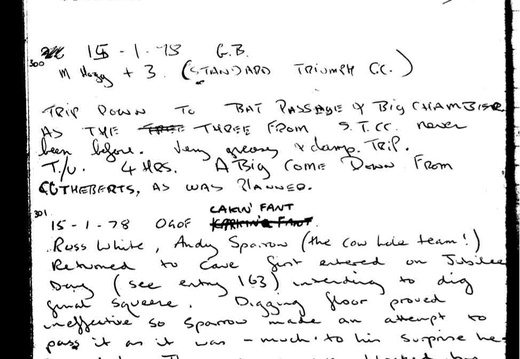 15 - 1 - 78 G.B.
300
M Hogg + 3. (STANDARD TRIUMPH CC.)
TRIP DOWN TO BAT PASSAGE & BIG CHAMBER
AS THE THREE FROM S.T.CC. never
been before. Very greasy & damp. TRIP.
T/U. 4 HRS. A BIG COME DOWN FROM
CUTHBERTS, AS WAS PLANNED.
301
CAKIN' FANT
15 - 1 - 78 OGOF
Russ White, Andy Sparrow (the cow hole team!)
Returned to Cave first entered on Jubilee
Day (see entry 163) intending to dig
final squeeze. Digging floor proved
ineffective so Sparrow made an attempt to
pass it as it was - much to his surprise he